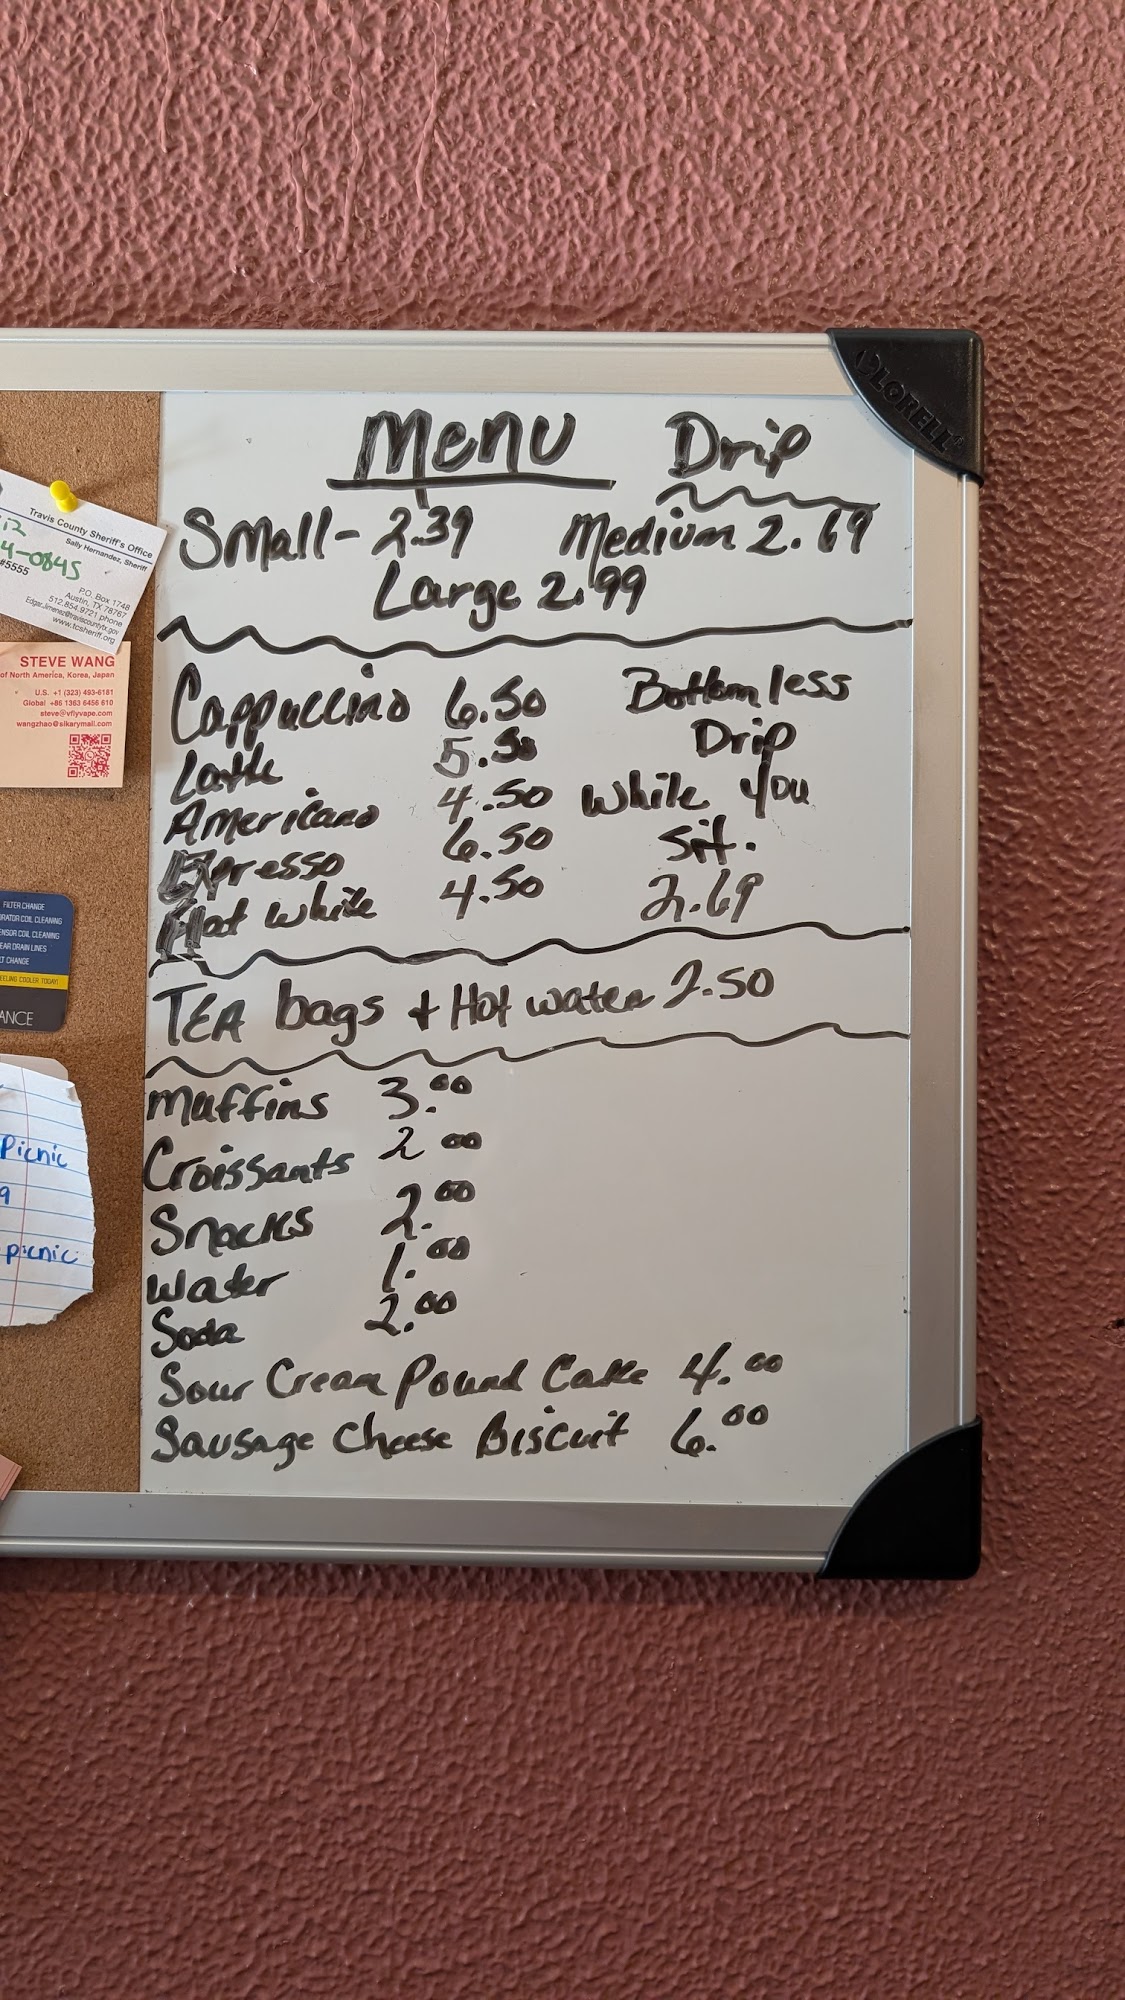 LORELL
Menu Drip
Small - 2.39 Medium 2.69
Large 2.99
Cappuccino 6.50
Latte 5.50
Americano 4.50
Expresso 6.50
Flat white 4.50
Bottomless
Drip
While you
sit.
2.69
TEA bags + Hot water 2.50
Muffins 3.00
Croissants 2 00
Snacks 2.00
Water 1.00
Soda 2.00
Sour Cream Pound Cake 4.00
Sausage Cheese Biscuit 6.00
Travis County Sheriff's Office
Sally Hernandez, Sheriff
4-0845
#5555
P.O. Box 1748
Austin, TX 78767
512.854.9721 phone
Edgar.Jimenez@traviscountytx.gov
www.tcsheriff.org
STEVE WANG
of North America, Korea, Japan
U.S. +1 (323) 493-6181
Global +86 1363 6456 610
steve@vflyvape.com
wangzhao@sikarymail.com
FILTER CHANGE
RATOR COIL CLEANING
ENSOR COIL CLEANING
EAR DRAIN LINES
LT CHANGE
FEELING COOLER TODAY!
ANCE
Picnic
9
picnic